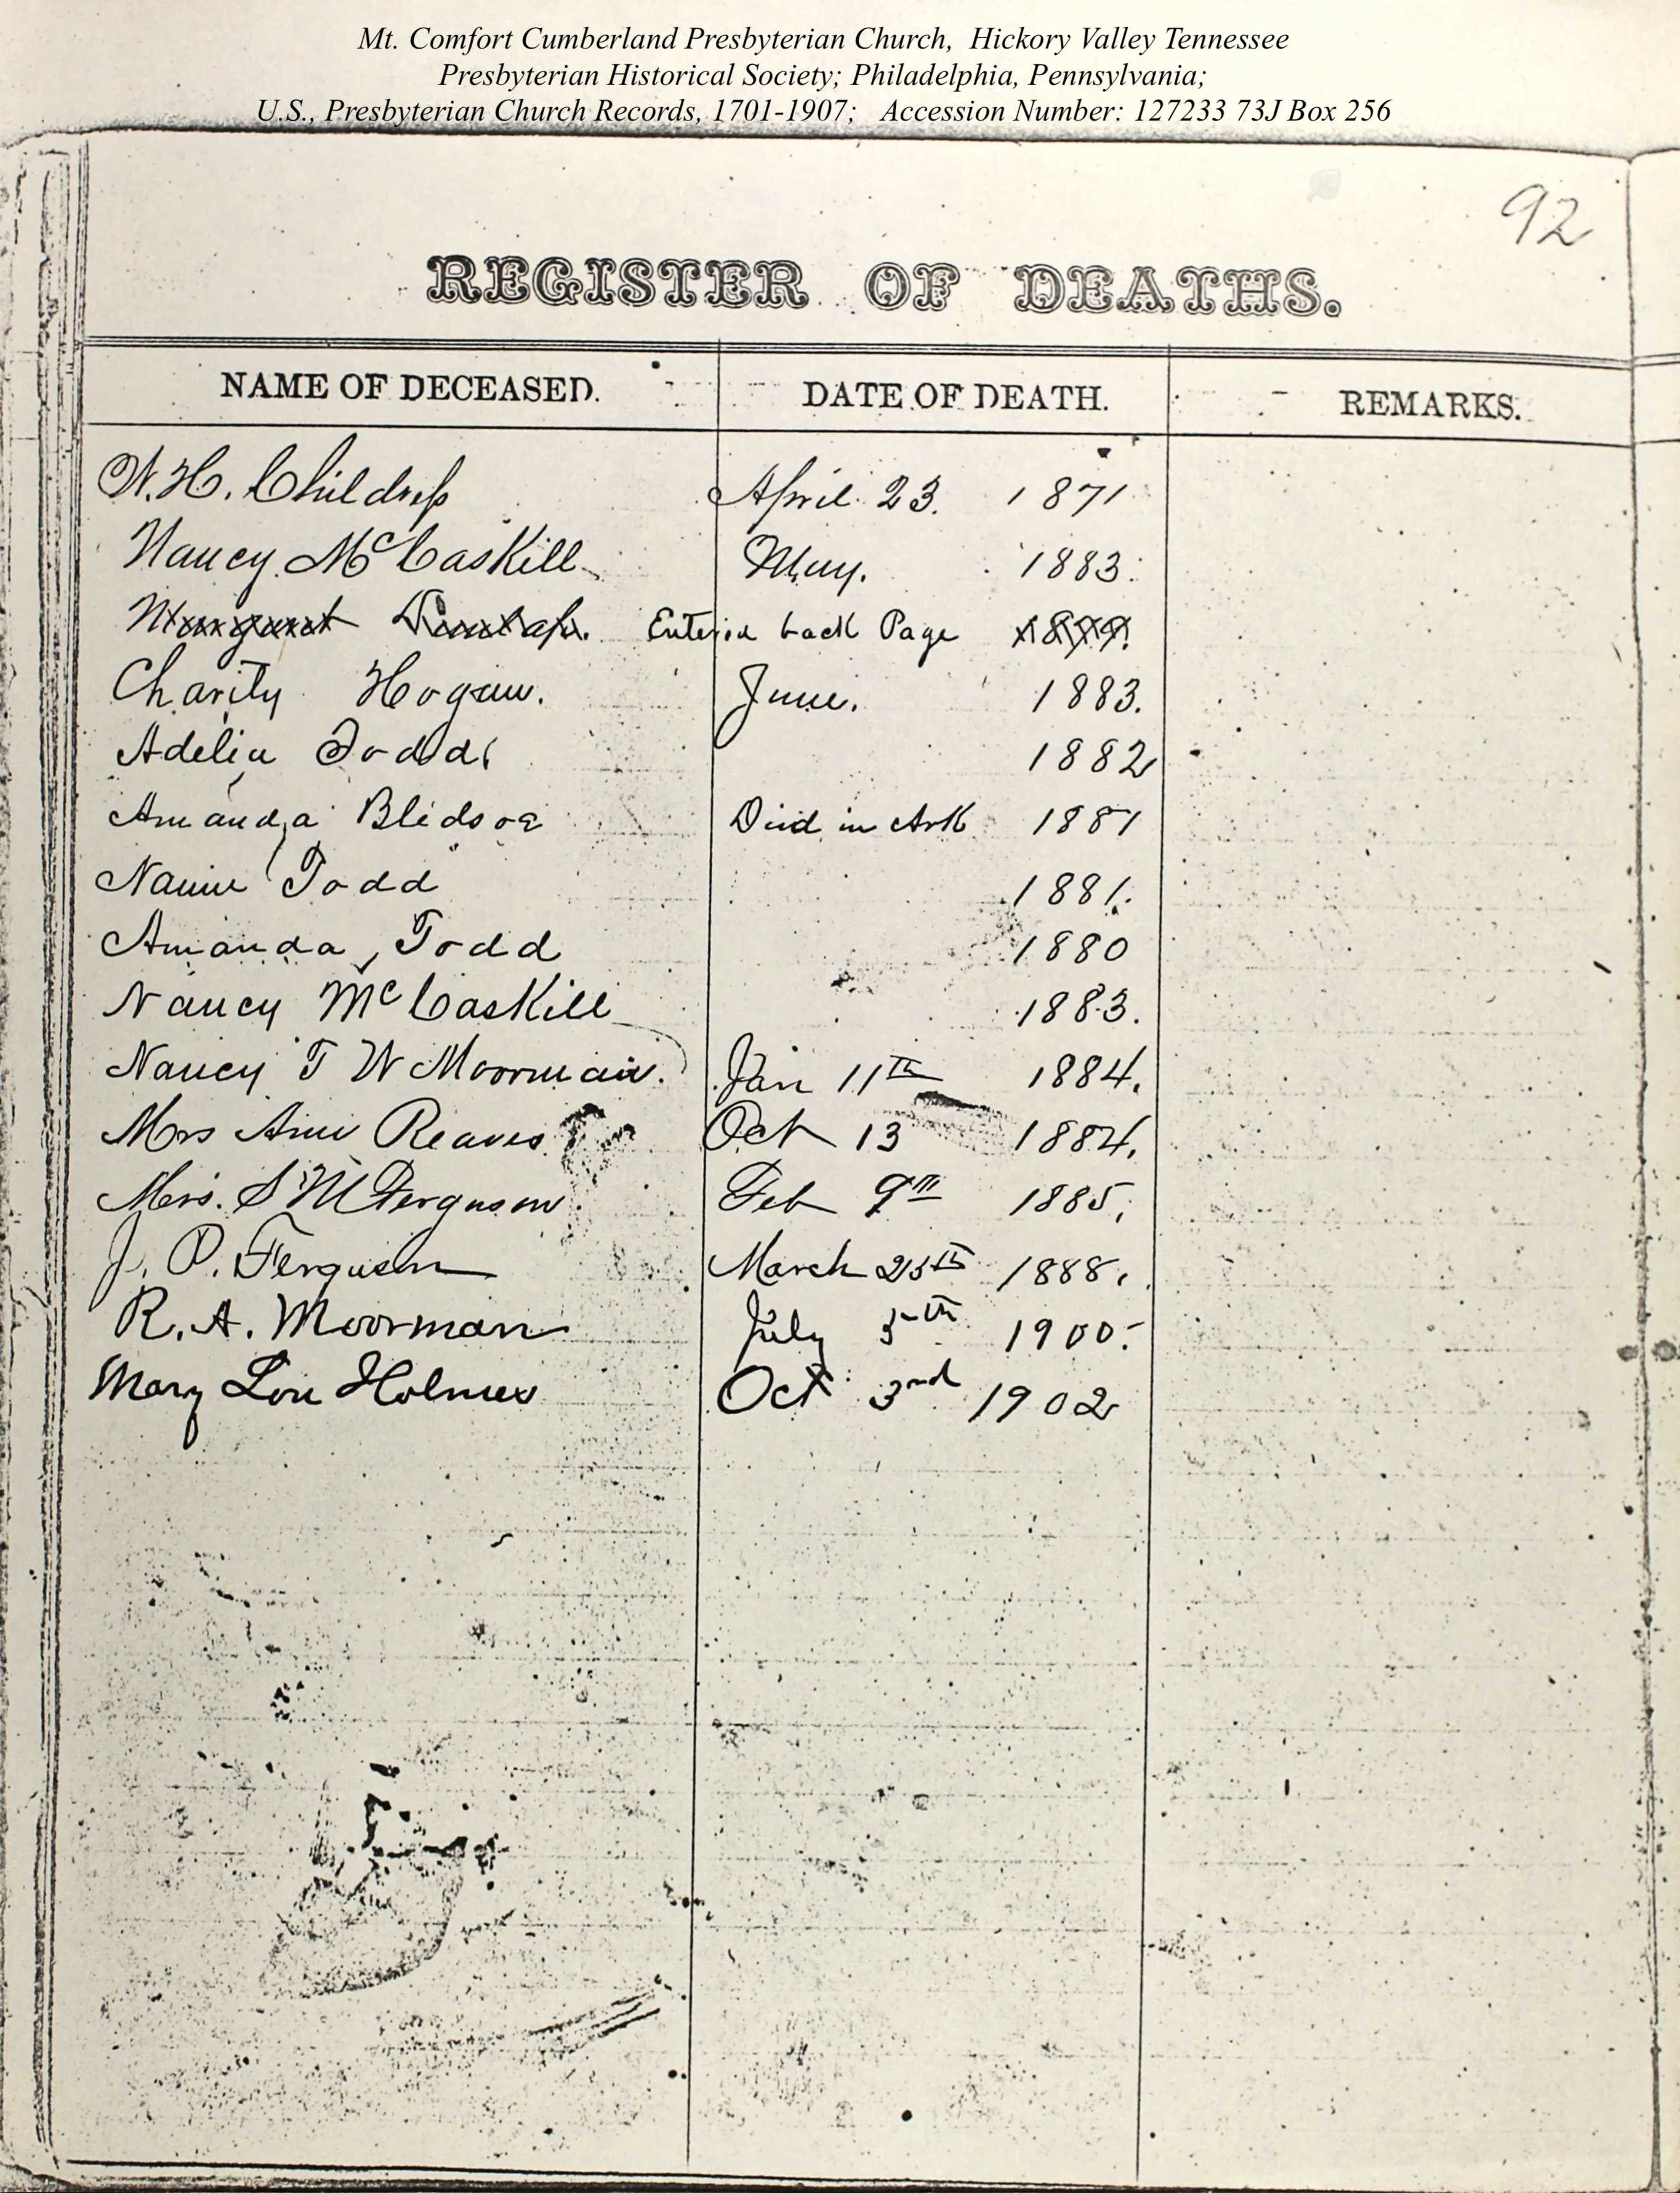 Mt. Comfort Cumberland Presbyterian Church, Hickory Valley Tennessee
Presbyterian Historical Society; Philadelphia, Pennsylvania;
U.S., Presbyterian Church Records, 1701-1907; Accession Number: 127233 73J Box 256
92
REGISTER OF DEATHS.
NAME OF DECEASED. DATE OF DEATH. REMARKS.
W. H. Childress April 23. 1871
Nancy McCaskill May. 1883.
Margaret Dunlap. Enterid back Page 1879.
Charity Hogan. June. 1883.
Adelia Todd 1882
Amanda Bledsoe Died in Ark 1881
Nannie Todd 1881.
Amanda Todd 1880
Nancy McCaskill 1883.
Nancy T W Moorman. Jan 11th 1884.
Mrs Ann Reaves Oct 13 1884.
Mrs. S M Ferguson. Feb 9th 1885.
J. P. Ferguson March 25th 1888.
R. A. Moorman July 5th 1900.
Mary Lou Holmes Oct 3rd 1902